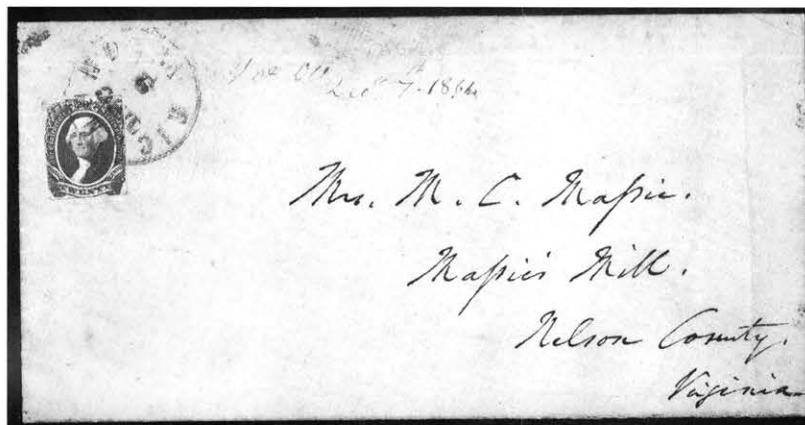 RICHMOND
Dec 7. 1864
Mrs. M. C. Maſsie.
Maſsie's Mill.
Nelson County.
Virginia